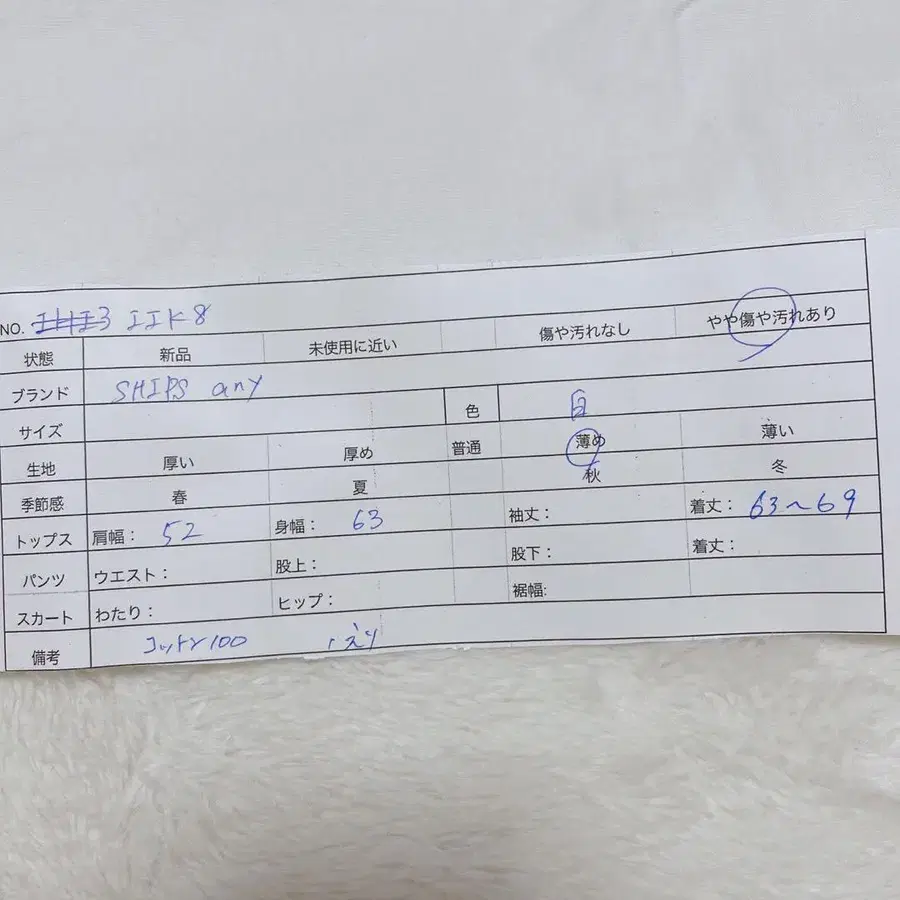 NO. エエK8
状態 新品 未使用に近い 傷や汚れなし やや傷や汚れあり
ブランド SHIPS any
サイズ 色 白
生地 厚い 厚め 普通 薄め 薄い
季節感 春 夏 秋 冬
トップス 肩幅： 52 身幅： 63 袖丈： 着丈： 63～69
パンツ ウエスト： 股上： 股下： 着丈：
スカート わたり： ヒップ： 裾幅:
備考 コットン100